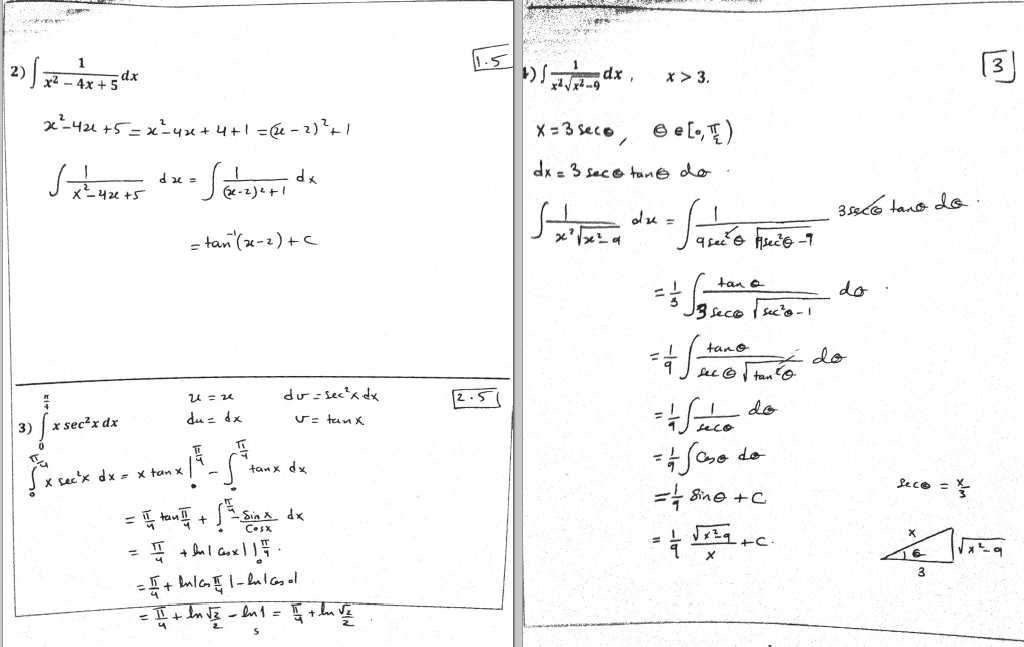 2) ∫ 1/(x² − 4x + 5) dx
1.5
x²−4x+5 = x²−4x+4+1 = (x−2)²+1
∫ 1/(x²−4x+5) dx = ∫ 1/((x−2)²+1) dx
= tan⁻¹(x−2) + C
3) ∫₀^(π/4) x sec²x dx
u = x    dv = sec²x dx
2.5
du = dx    v = tan x
∫₀^(π/4) x sec²x dx = x tan x |₀^(π/4) − ∫₀^(π/4) tan x dx
= π/4 tan π/4 + ∫₀^(π/4) −Sin x/Cos x dx
= π/4 + ln|Cos x| |₀^(π/4)
= π/4 + ln|Cos π/4| − ln|Cos 0|
= π/4 + ln √2/2 − ln 1 = π/4 + ln √2/2
5
4) ∫ 1/(x²√(x²−9)) dx ,    x > 3.
3
x = 3 sec θ , θ ∈ [0, π/2)
dx = 3 sec θ tan θ dθ .
∫ 1/(x²√(x²−9)) dx = ∫ 1/(9 sec²θ √(9sec²θ − 9)) 3 sec θ tan θ dθ .
= 1/3 ∫ tan θ/(3 sec θ √(sec²θ − 1)) dθ .
= 1/9 ∫ tan θ/(sec θ √(tan²θ)) dθ
= 1/9 ∫ 1/sec θ dθ
= 1/9 ∫ Cos θ dθ
= 1/9 Sin θ + C
= 1/9 √(x²−9)/x + C.
sec θ = x/3
x
θ
√(x²−9)
3